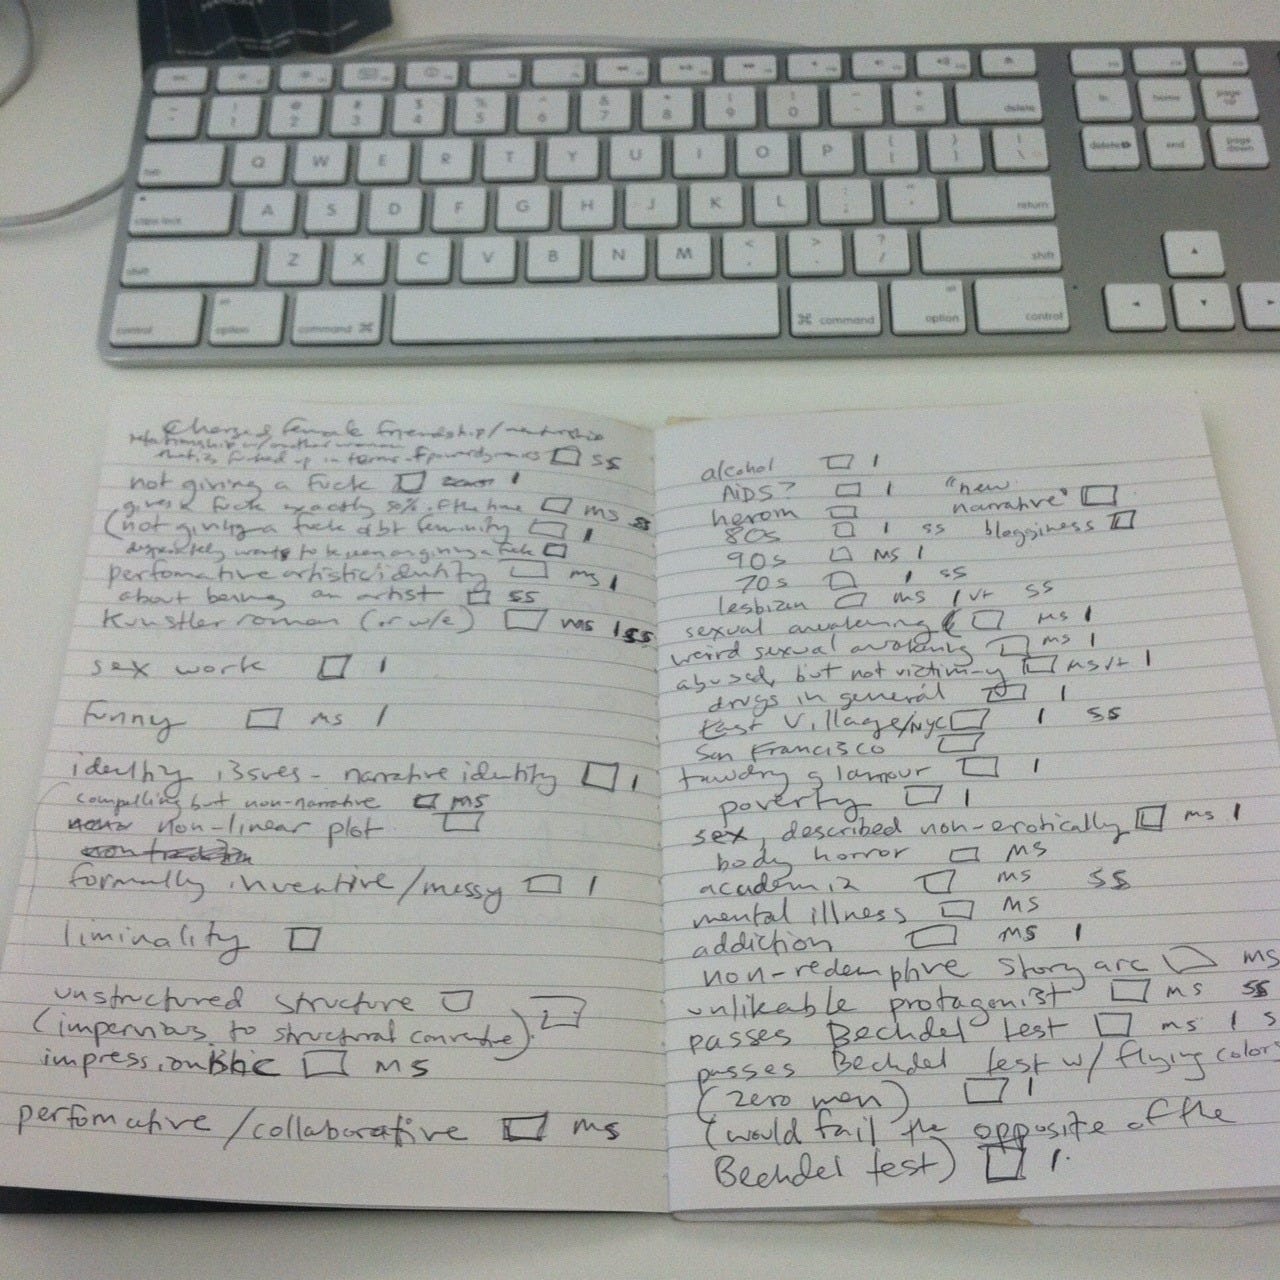 delete
home
page up
Q W E R T Y U I O P
delete
end
page down
caps lock
A S D F G H J K L
return
shift
Z X C V B N M
shift
control
option
command ⌘
⌘ command
option
control
Charged female friendship/mentorship
relationship w/ another woman
that is fucked up in terms of power dynamics □ SS
not giving a fuck □ 1
gives a fuck exactly 50% of the time □ ms SS
(not giving a fuck abt femininity □ 1
desperately wants to be seen as giving a fuck □
perfomative artistic identity □ ms 1
about being an artist □ SS
Kunstler roman (or w/e) □ ms 1 SS
sex work □ 1
Funny □ ms 1
identity issues - narrative identity □ 1
compelling but non-narrative □ ms
non-linear plot □
formally inventive/messy □ 1
liminality □
unstructured structure □ □
(impervious to structural convention)
impressionistic □ ms
perfomative/collaborative □ ms
alcohol □ 1
AIDS? □ 1 "new
heroin □ narrative" □
80s □ 1 SS blogginess □
90s □ MS 1
70s □ 1 SS
lesbian □ ms 1 vt SS
sexual awakening □ ms 1
weird sexual awakening □ ms 1
abused, but not victim-y □ ms vt 1
drugs in general □ 1
East Village/NYC □ 1 SS
San Francisco □
tawdry glamour □ 1
poverty □ 1
sex, described non-erotically □ ms 1
body horror □ MS
academia □ ms SS
mental illness □ MS
addiction □ MS 1
non-redemptive story arc □ ms
unlikeable protagonist □ ms SS
passes Bechdel test □ ms 1 S
passes Bechdel test w/ flying colors
(zero men) □ 1
(would fail the opposite of the
Bechdel test) □ 1.